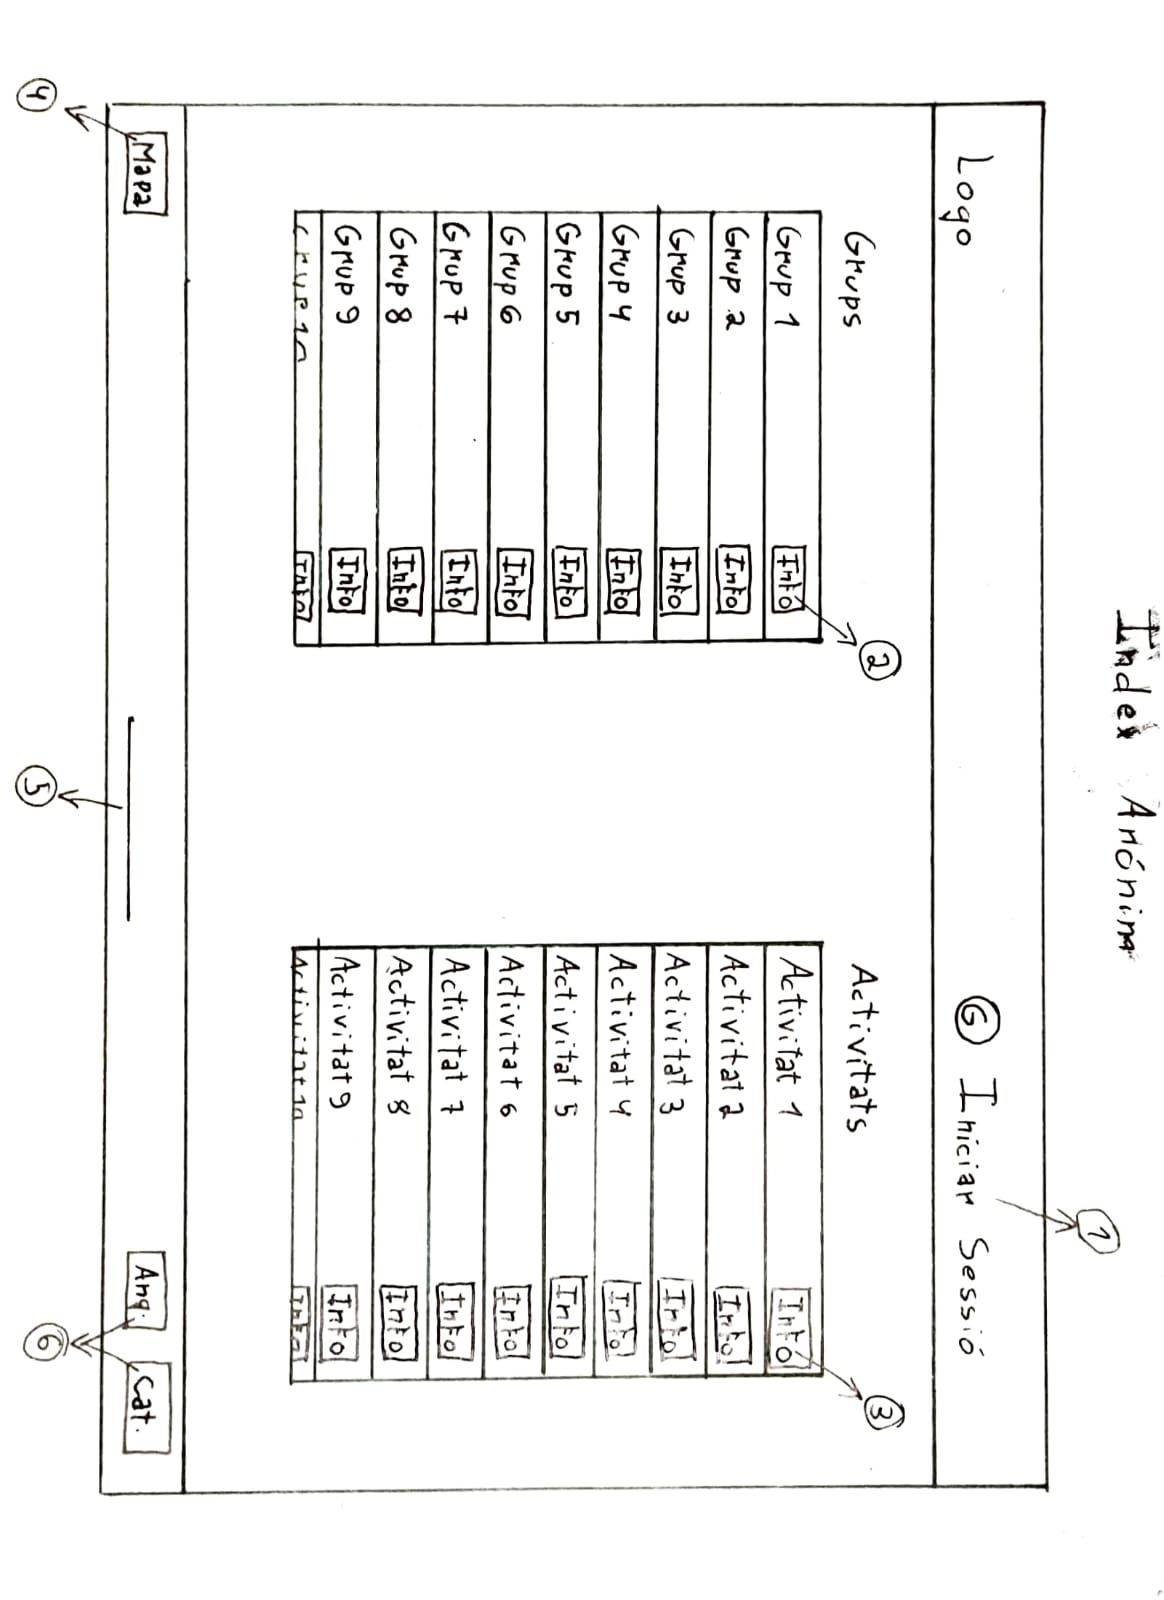 Index Anònim
1
Logo
G Iniciar Sessió
Grups
2
Grup 1 Info
Grup 2 Info
Grup 3 Info
Grup 4 Info
Grup 5 Info
Grup 6 Info
Grup 7 Info
Grup 8 Info
Grup 9 Info
Grup 10 Info
Activitats
3
Activitat 1 Info
Activitat 2 Info
Activitat 3 Info
Activitat 4 Info
Activitat 5 Info
Activitat 6 Info
Activitat 7 Info
Activitat 8 Info
Activitat 9 Info
Activitat 10 Info
Mapa
Ang.
Cat.
4
5
6